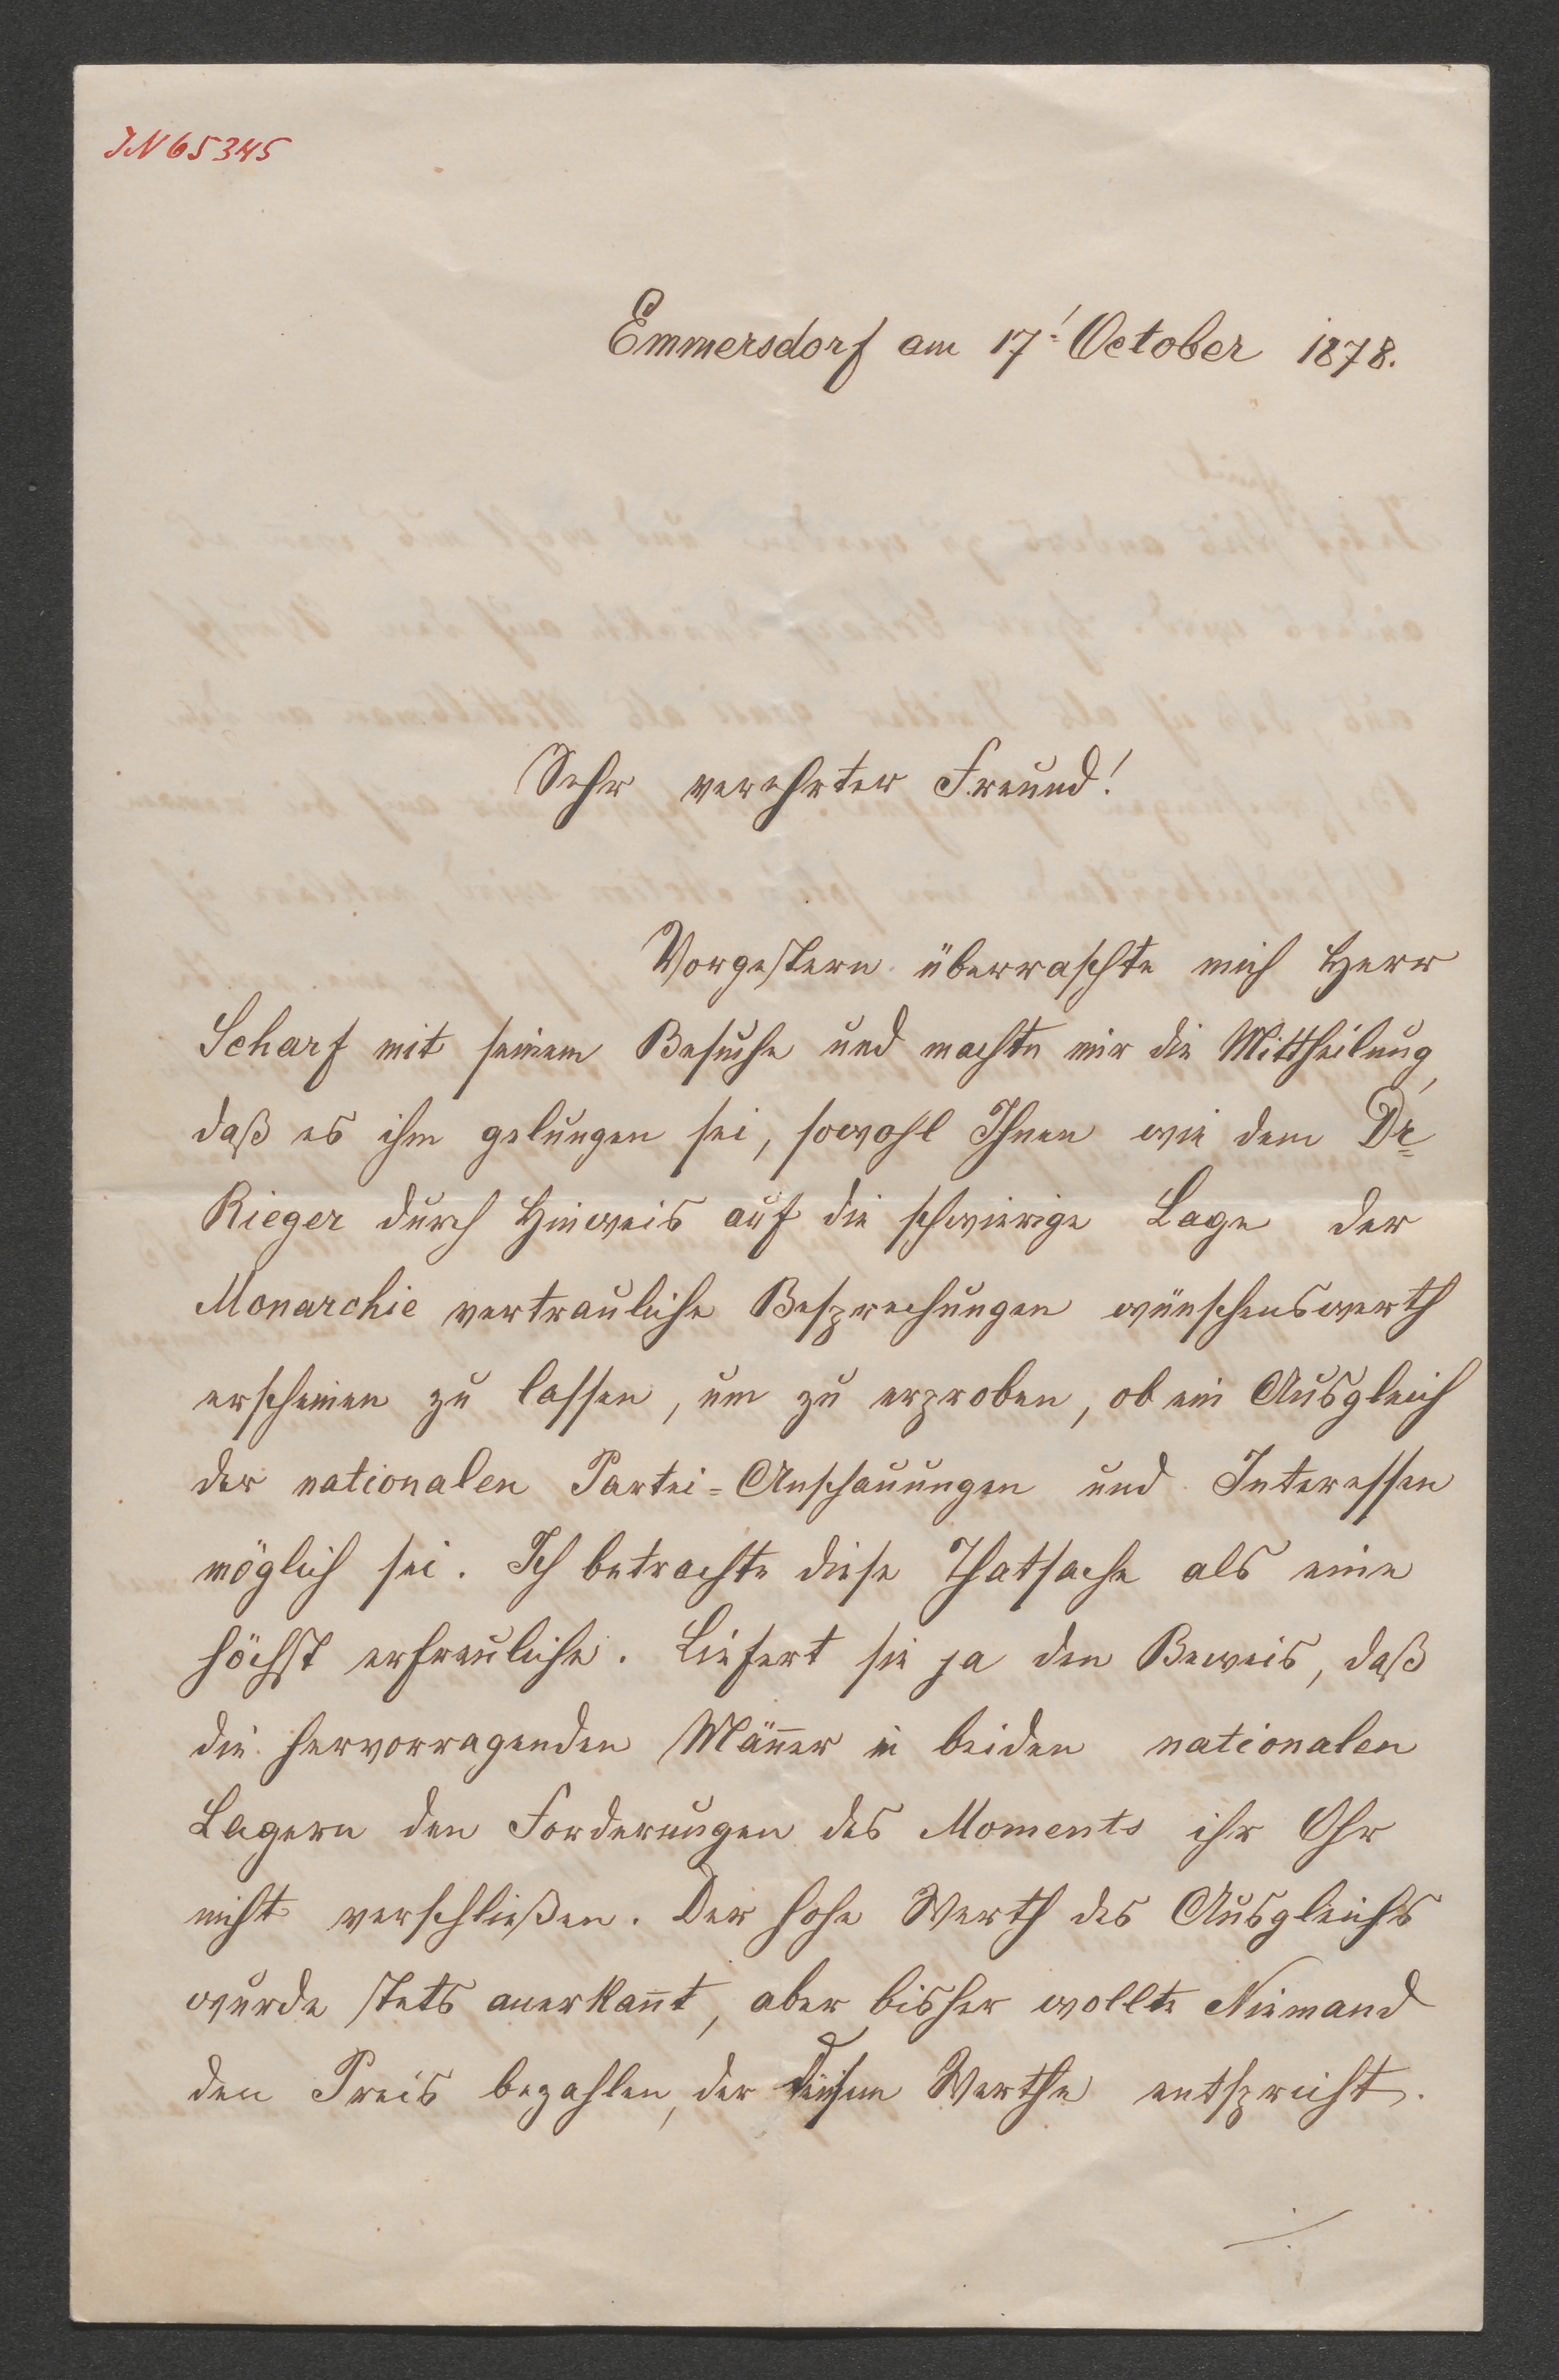 IN 65345
Emmersdorf am 17. October 1878.
Sehr verehrter Freund!
Vorgestern überraschte mich Herr
Scharf mit seinem Besuche und machte mir die Mittheilung,
daß es ihm gelungen sei, sowohl Ihnen wie dem Dr
Rieger durch Hinweis auf die schwierige Lage der
Monarchie vertrauliche Besprechungen wünschenswerth
erscheinen zu lassen, um zu erproben, ob ein Ausgleich
der nationalen Partei-Anschauungen und Interessen
möglich sei. Ich betrachte diese Thatsache als eine
höchst erfreuliche. Liefert sie ja den Beweis, daß
die hervorragenden Männer in beiden nationalen
Lagern den Forderungen des Moments ihr Ohr
nicht verschließen. Der hohe Werth des Ausgleichs
wurde stets anerkannt, aber bisher wollte Niemand
den Preis bezahlen, der diesem Werthe entspricht.
./.